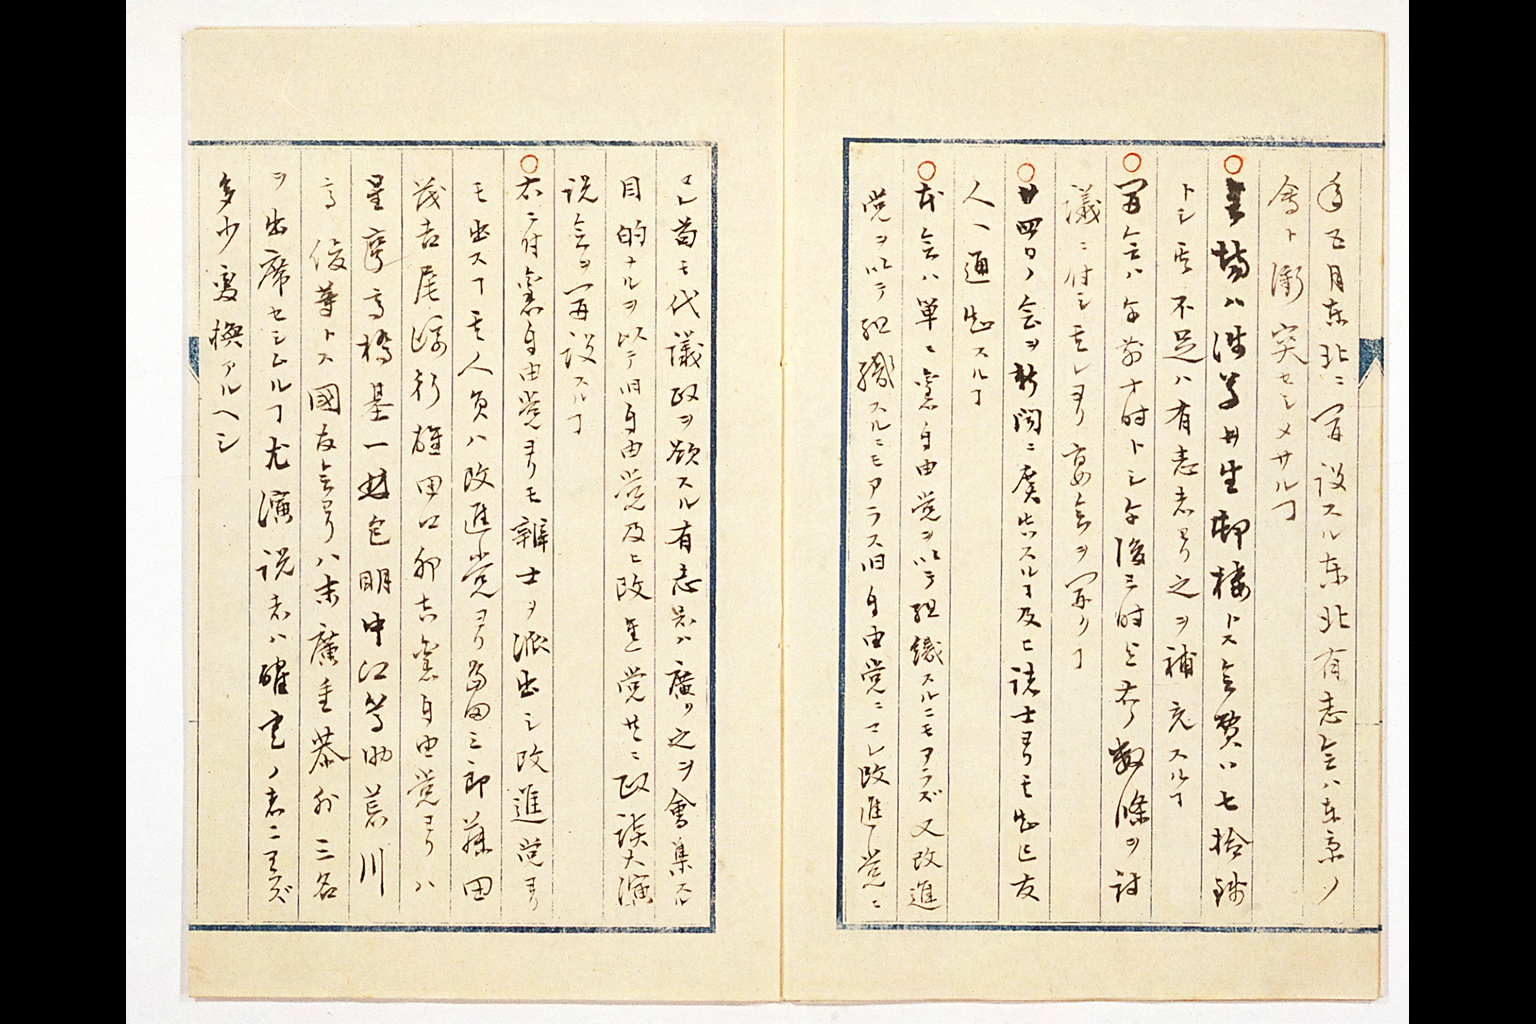 年五月東北ニ開設スル東北有志会ハ東京ノ
會ト衝突セシメサルヿ
○会場ハ浅草井生邨楼トス会費ハ七拾銭
トシ其不足ハ有志者ヨリ之ヲ補充スルヿ
○開会ハ午前十時トシ午後三時迄ニ数條ヲ討
議ニ付シ夫レヨリ宴会ヲ開クヿ
○廿四日ノ会ヲ新聞ニ廣告スルヿ及ヒ諸士ヨリモ知己友
人ヘ通知スルヿ
○本会ハ単ニ憲自由党ヲ以テ組織スルニモアラズ又改進
党ヲ以テ組織スルニモアラス旧自由党ニマレ改進党ニ
マレ苟モ代議政ヲ欲スル有志家ハ廣ク之ヲ會集スル
目的ナルヲ以テ旧自由党及ヒ改進党共ニ政談大演
説会ヲ開設スルヿ
○右ニ付憲自由党ヨリモ辯士ヲ派出シ改進党ヨリ
モ出スヿ其人員ハ改進党ヨリ島田三郎藤田
茂吉尾崎行雄田口卯吉憲自由党ヨリハ
星亨高橋基一加包明中江篤助荒川
高俊等トス國友会ヨリハ末廣重恭外三名
ヲ出席セシムルヿ尤演説者ハ確定ノ者ニアラズ
多少変換アルヘシ